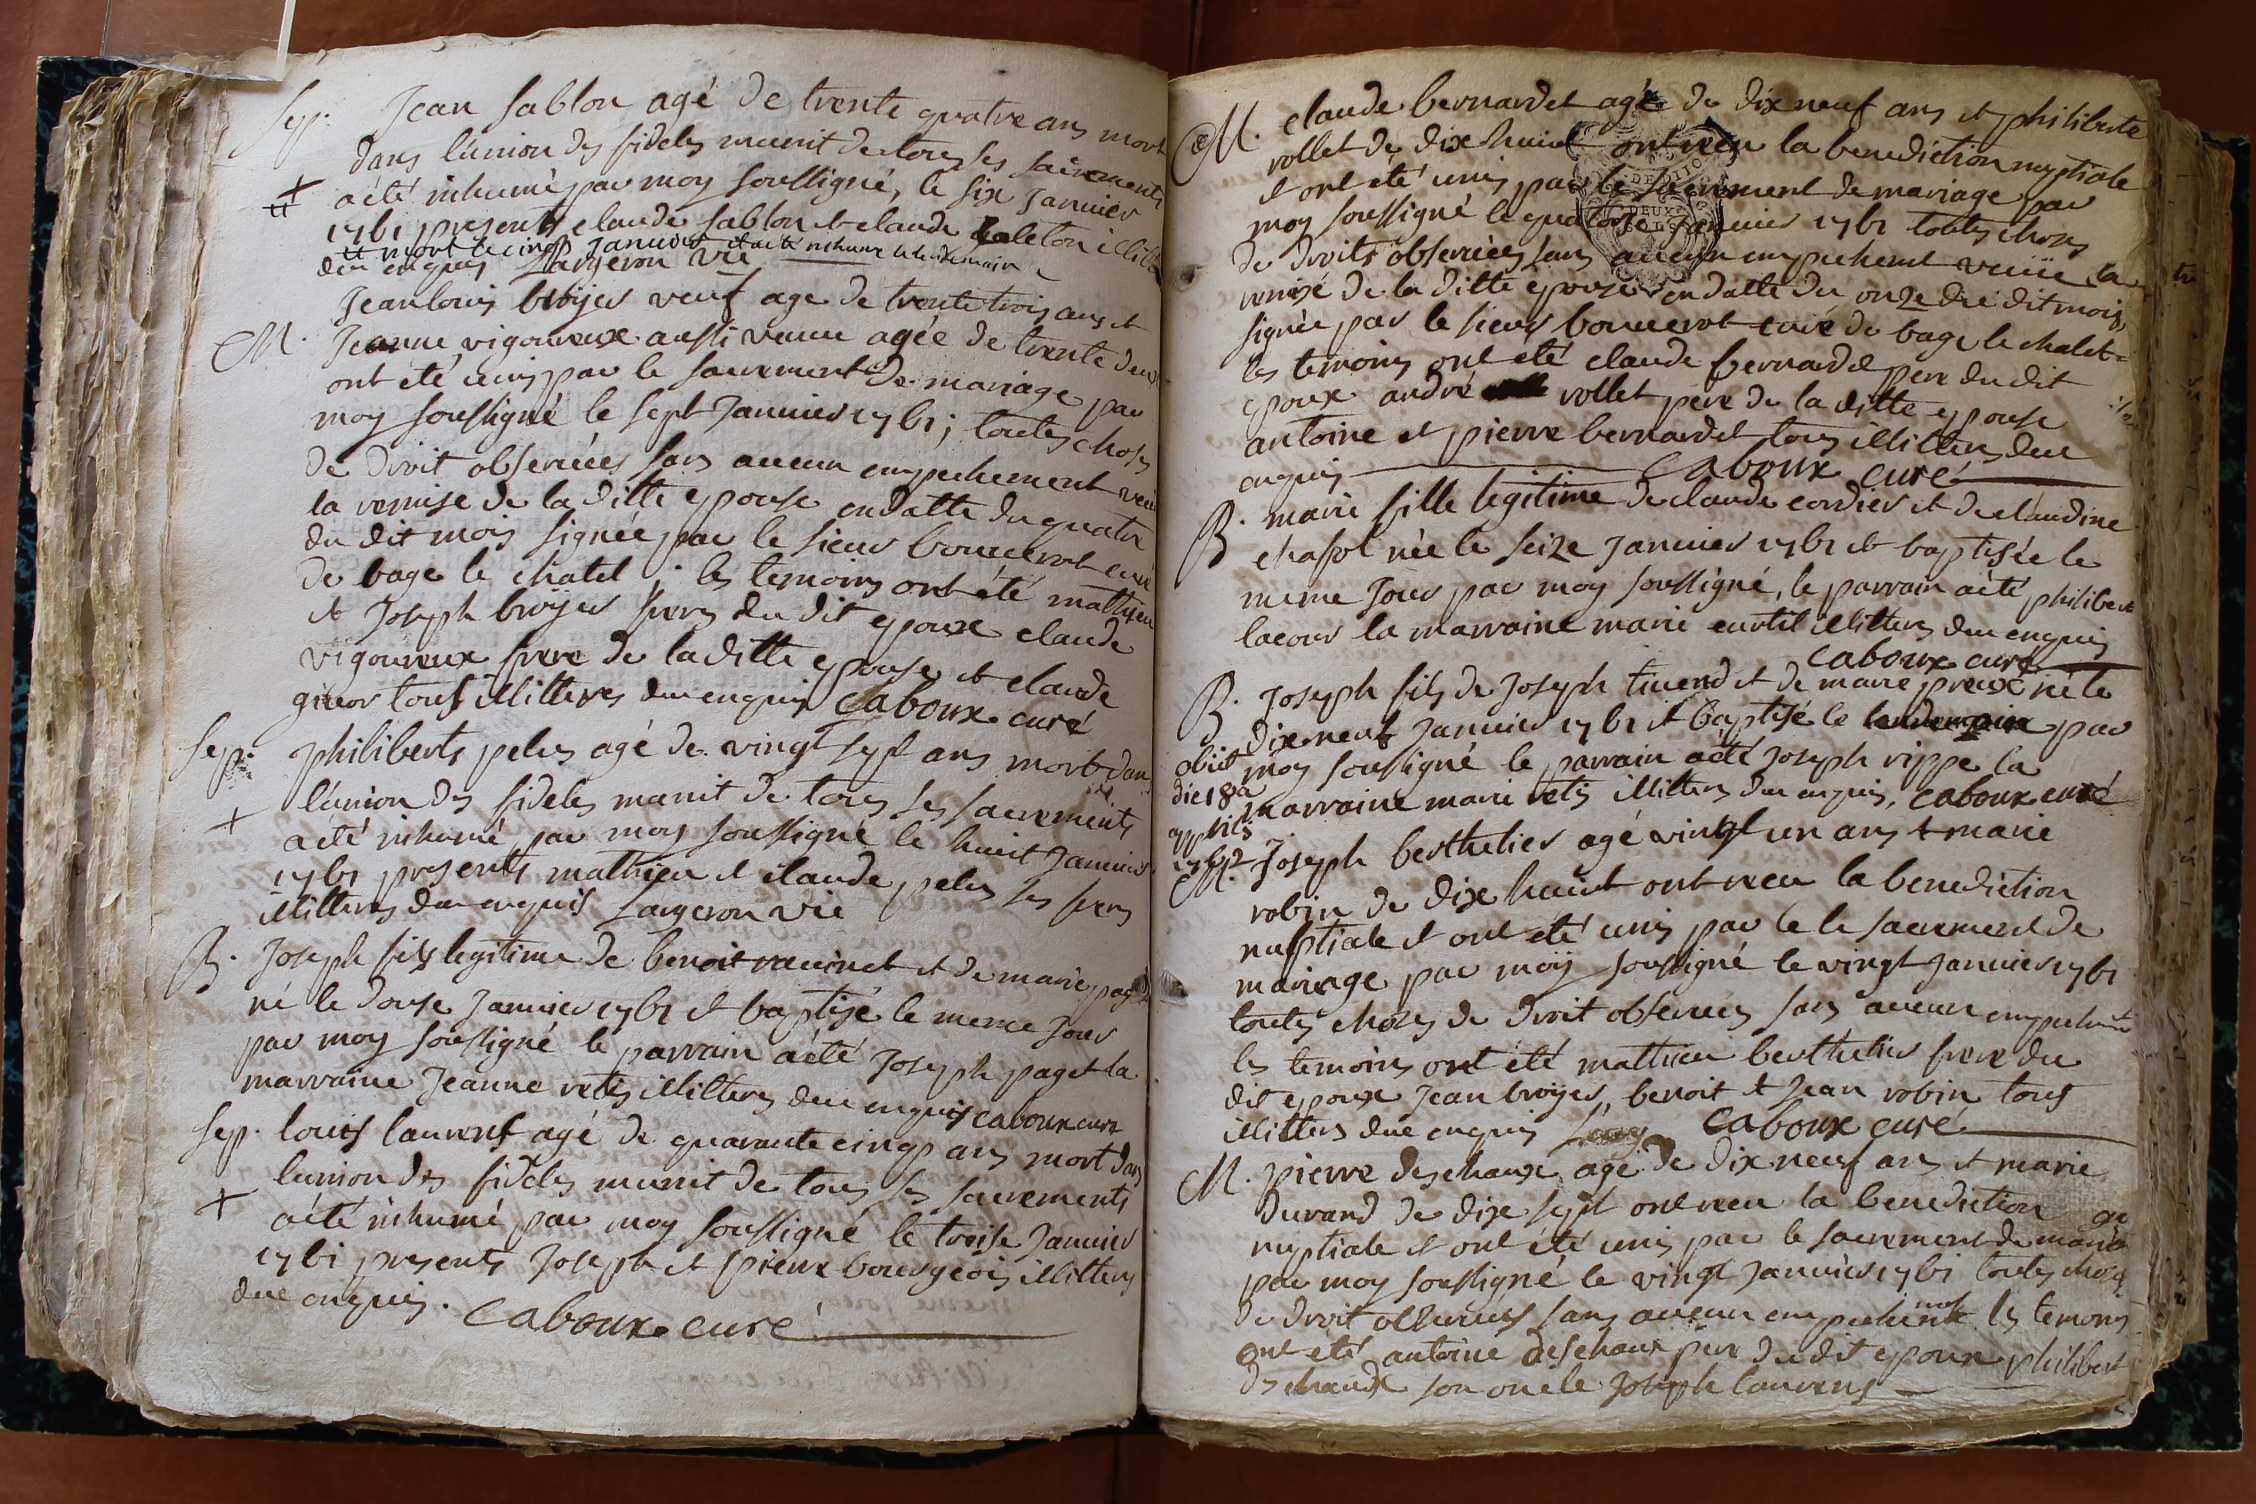 Sep. Jean Sablon agé de trente quatre ans mort
dans l'union des fideles munit de tous ses sacrements
a été inhumé par moy soussigné, le six Janvier
1761 presents claude Sablon et claude illitt
et mort le cinq Janvier et a été inhumé le lendemain
due enquis Largeron vic
Jean louis broyer veuf age de trente trois ans et
M. Jeanne vigoureux aussi veuve agée de trente deux
ont été unis par le sacrement de mariage par
moy soussigné le sept Janvier 1761; toutes choses
de droit observées sans aucun empechement venu
la remise de la ditte epouse en datte du quatre
du dit mois signée par le sieur bouverot curé
de bage le chatel; les temoins ont été mathieu
et Joseph broyer freres du dit epoux claude
vigoureux frere de la ditte epouse et claude
tous illitteres due enquis Caboux curé
Sep. philiberts pelus agé de vingt sept ans mort dans
l'union des fideles munit de tous ses sacrements
a été inhumé par moy soussigné le huit Janvier
1761 presents mathieu et claude pelus ses freres
illitteres due enquis Largeron vic
B. Joseph fils legitime de benoit vauvinet et de marie paget
né le douse Janvier 1761 et baptisé le meme jour
par moy soussigné le parrain a été Joseph paget la
marraine Jeanne retis illitteres due enquis caboux curé
Sep. louis laurent agé de quarante cinq ans mort dans
l'union des fideles munit de tous ses sacrements
a été inhumé par moy soussigné le treise Janvier
1761 presents Joseph et pierre bourgeois illitteres
due enquis. Caboux curé
M. claude bernardet agé de dix neuf ans et philiberte
rollet de dix huit ont reçu la benediction nuptiale
et ont été unis par le sacrement de mariage par
moy soussigné le quatorse Janvier 1761 toutes choses
de droits observées sans aucun empechement venüe la
remise de la ditte epouse en datte du onze du dit mois,
signée par le sieur bouverot curé de bage le chatel=
les temoins ont été claude bernardet pere du dit
epoux andré rollet pere de la ditte epouse
antoine et pierre bernardet tous illitteres due
enquis Caboux curé
B. marie fille legitime de claude cordier et de claudine
chafol née le seize Janvier 1761 et baptisée le
meme jour par moy soussigné, le parrain a été philibert
lacour la marraine marie curtil illitteres due enquis
Caboux curé
B. Joseph fils de Joseph tivend et de marie preux né le
dix neuf Janvier 1761 et baptisé le lendemain par
moy soussigné le parrain a été Joseph rippe la
marraine marie retis illitteres due enquis, Caboux curé
obiit
die 18a
aprilis
1762
M. Joseph berthelier agé vingt un ans et marie
robin de dix huit ont reçu la benediction
nusptiale et ont été unis par le le sacrement de
mariage par moÿ soussigné le vingt Janvier 1761
toutes choses de droit observees sans aucun empechemt
les temoins ont été mathieu berthelier frere du
dit epoux Jean broyer, benoit et Jean robin tous
illitteres due enquis Caboux curé
M. pierre deschaux agé de dix neuf ans et marie
Durand de dix sept ont reçu la benediction
nuptiale et ont été unis par le sacrement de mariage
par moy soussigné le vingt Janvier 1761 toutes choses
de droit observées sans aucun empechement les temoins
ont été antoine deschaux pere du dit epoux philibert
deschaux son oncle Joseph laurens